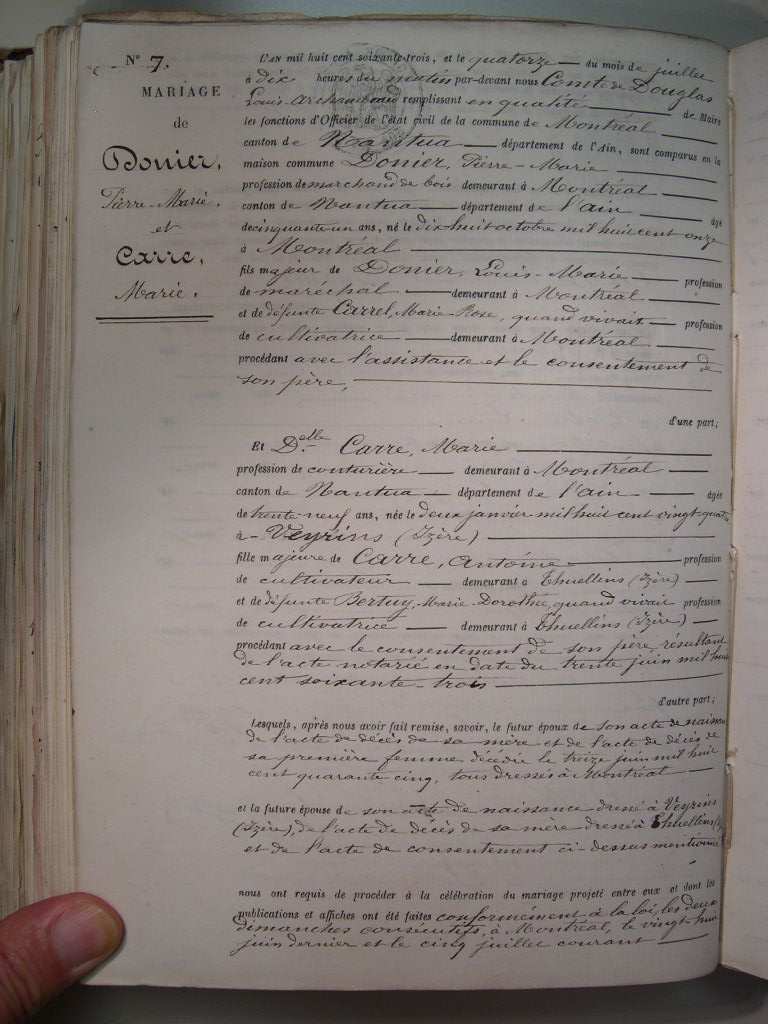 N° 7.
MARIAGE
de
Donier,
Pierre-Marie.
et
Carre,
Marie.
L'AN mil huit cent soixante-trois, et le quatorze du mois de juillet
à dix heures du matin par-devant nous Comte de Douglas
Louis-Archambaud remplissant en qualité de Maire
les fonctions d'Officier de l'état civil de la commune de Montréal
canton de Nantua département de l'Ain, sont comparus en la
maison commune Donier, Pierre-Marie
profession de marchand de bois demeurant à Montréal
canton de Nantua département de l'ain âgé
de cinquante un ans, né le dix-huit octobre mil huit cent onze
à Montréal
fils majeur de Donier, Louis-Marie profession
de maréchal demeurant à Montréal
et de défunte Carrel, Marie-Rose, quand vivait profession
de cultivatrice demeurant à Montréal
procédant avec l'assistance et le consentement de
son père,
d'une part;
Et D.elle Carre, Marie
profession de couturière demeurant à Montréal
canton de Nantua département de l'ain âgée
de trente-neuf ans, née le deux janvier mil huit cent vingt-quatre
à Veyrins (Izère)
fille majeure de Carre, Antoine profession
de cultivateur demeurant à Thuellins (Izère)
et de défunte Bertuy, Marie-Dorothée, quand vivait profession
de cultivatrice demeurant à Thuellins (Izère)
procédant avec le consentement de son père, résultant
de l'acte notarié en date du trente juin mil huit
cent soixante-trois
d'autre part;
Lesquels, après nous avoir fait remise, savoir, le futur époux de son acte de naissance
de l'acte de décès de sa mère et de l'acte de décès de
sa première femme décédée le treize juin mil huit
cent quarante cinq, tous dressés à Montréal
et la future épouse de son acte de naissance dressé à Veyrins
(Izère), de l'acte de décès de sa mère dressé à Thuellins
et de l'acte de consentement ci-dessus mentionné
nous ont requis de procéder à la célébration du mariage projeté entre eux et dont les
publications et affiches ont été faites conformément à la loi, les deux
dimanches consécutifs, à Montréal, le vingt-huit
juin dernier et le cinq juillet courant